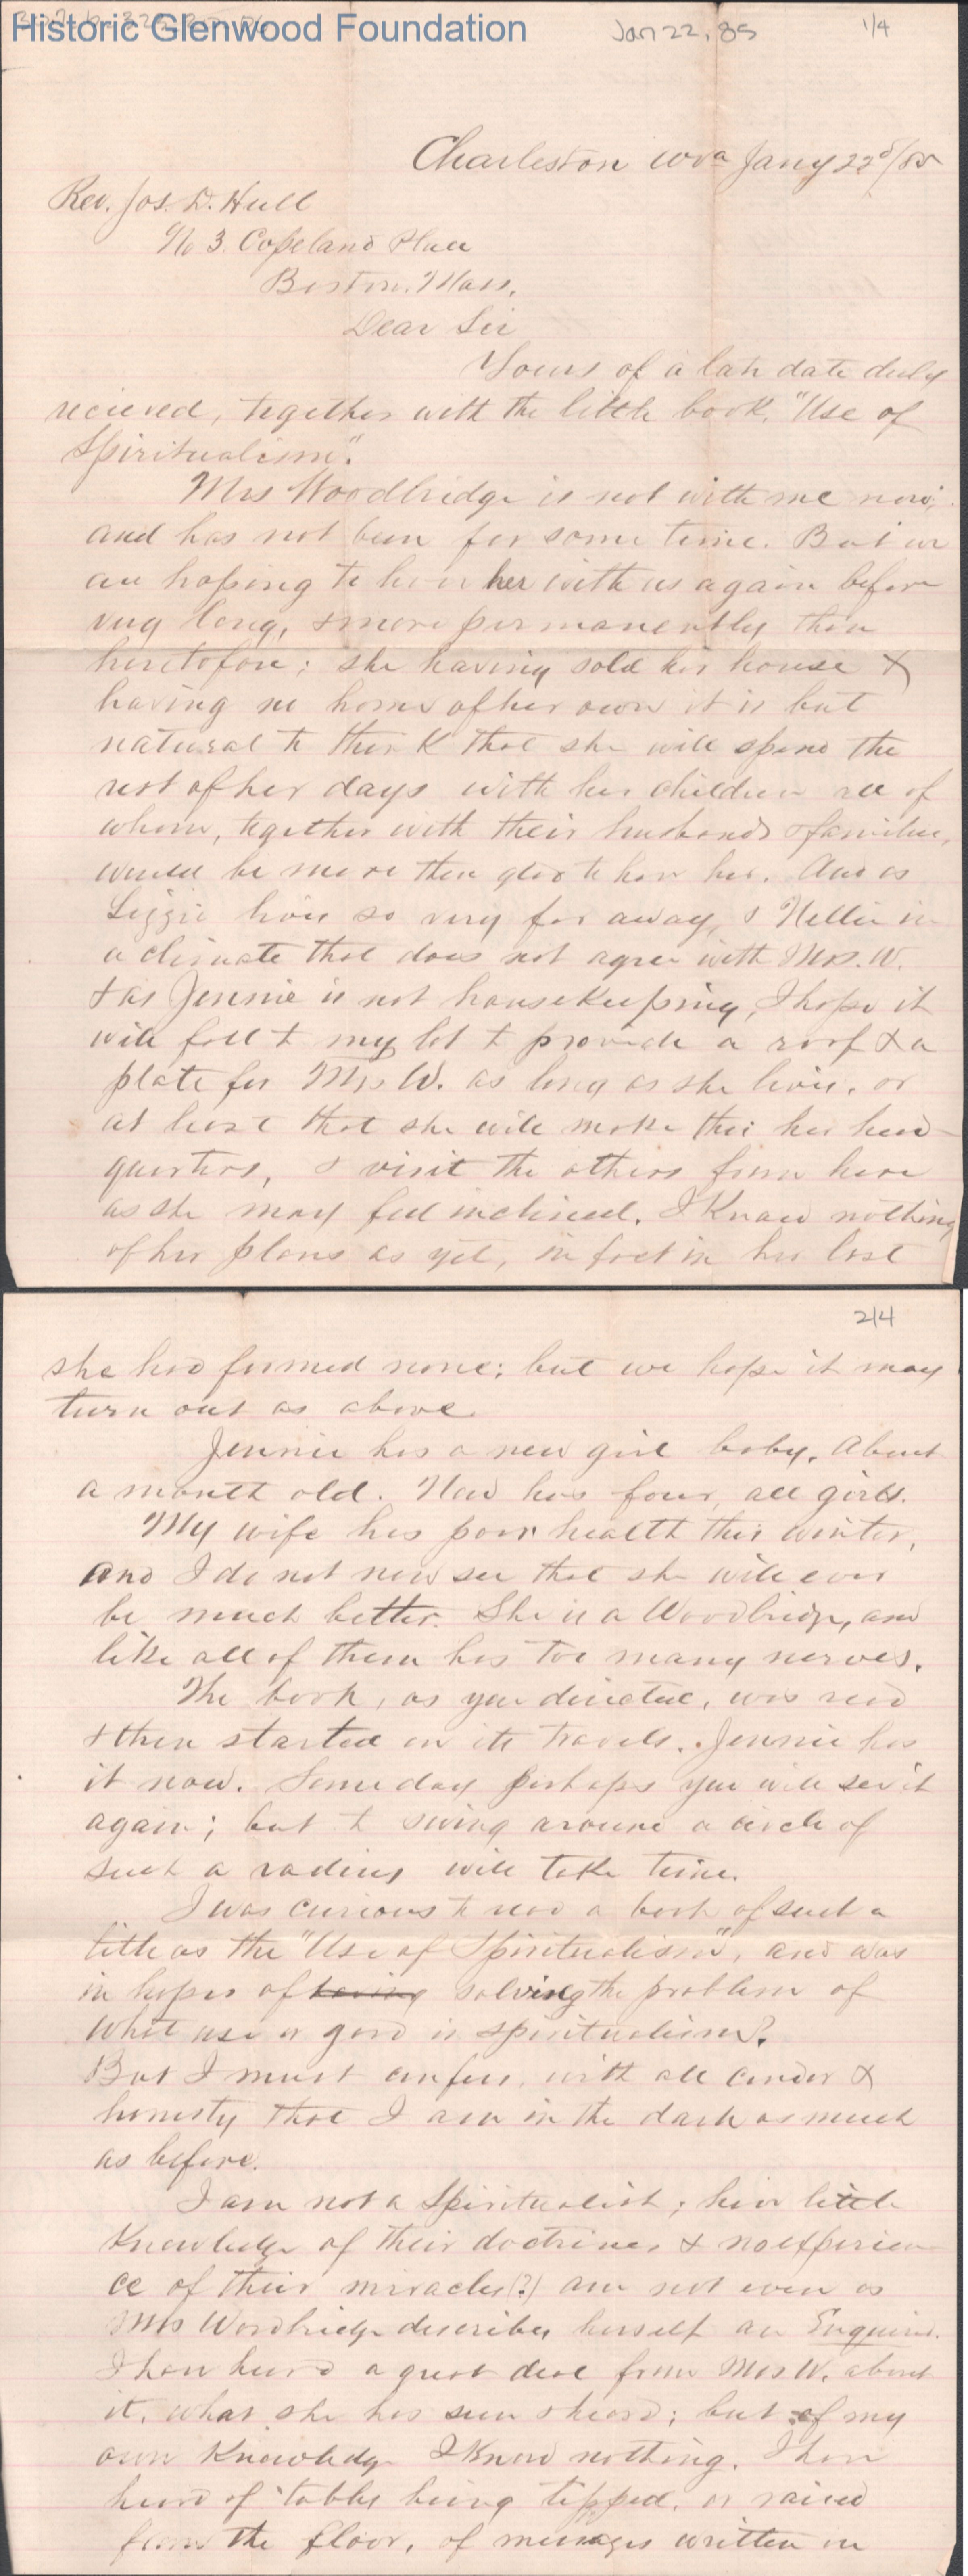 Historic Glenwood Foundation
Jan 22, 85
1/4
Charleston Wva Jany 22d/85
Rev. Jos. D. Hull
No 3. Copeland Place
Boston, Mass.
Dear Sir
Yours of a late date duly
recieved, together with the little book, "Use of
Spiritualism".
Mrs Woodbridge is not with me now,
and has not been for some time. But we
are hoping to have her with us again before
very long, & more permanently than
heretofore; she having sold her house &
having no home of her own it is but
natural to think that she will spend the
rest of her days with her children all of
whom, together with their husbands & families,
would be more than glad to have her. And as
Lizzie lives so very far away, & Nellie in
a climate that does not agree with Mrs. W.
& as Jennie is not housekeeping, I hope it
will fall to my lot to provide a roof & a
plate for Mrs W. as long as she lives, or
at least that she will make this her head
quarters, & visit the others from here
as she may feel inclined. I Know nothing
of her plans as yet, in fact in her last
2/4
she had formed none; but we hope it may
turn out as above.
Jennie has a new girl baby, About
a month old. Now has four, all girls.
My wife has poor health this winter,
and I do not now see that she will ever
be much better. She is a Woodbridge, and
like all of them has too many nerves.
The book, as you directed, was read
& then started on its travels. Jennie has
it now. Some day perhaps you will see it
again; but to swing around a circle of
such a radius will take time.
I was curious to read a book of such a
title as the "Use of Spiritualism", and was
in hopes of having solving the problem of
What use or good is spiritualism?
But I must confess, with all candor &
honesty that I am in the dark as much
as before.
I am not a Spiritualist; have little
Knowledge of their doctrines & no experien
ce of their miracles(?) am not even as
Mrs Woodbridge describes herself an Enquirer.
I have heard a great deal from Mrs W. about
it, what she has seen & heard; but of my
own Knowledge I Know nothing. I have
heard of tables being tipped, or raised
from the floor, of messages written on